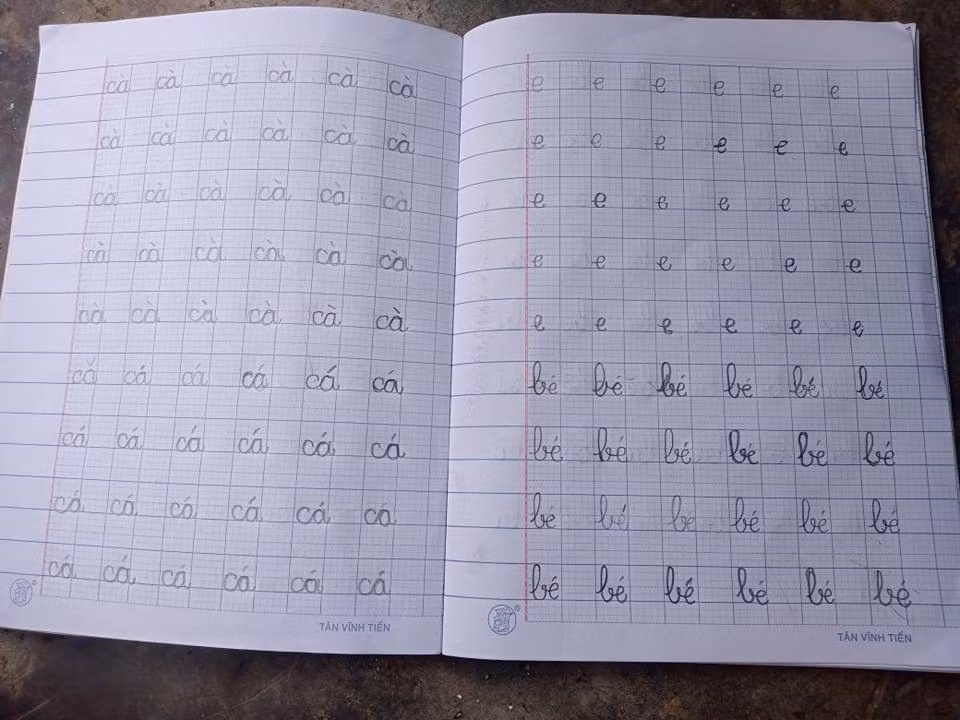 cà cà cà cà cà cà
cà cà cà cà cà cà
cà cà cà cà cà cà
cà cà cà cà cà cà
cà cà cà cà cà cà
cá cá cá cá cá cá
cá cá cá cá cá cá
cá cá cá cá cá ca
cá cá cá cá cá cá
TÂN VĨNH TIẾN
e e e e e e
e e e e e e
e e e e e e
e e e e e e
e e e e e e
bé bé bé bé bé bé
bé bé bé bé bé bé
bé bé bé bé bé bé
bé bé bé bé bé bé
TÂN VĨNH TIẾN